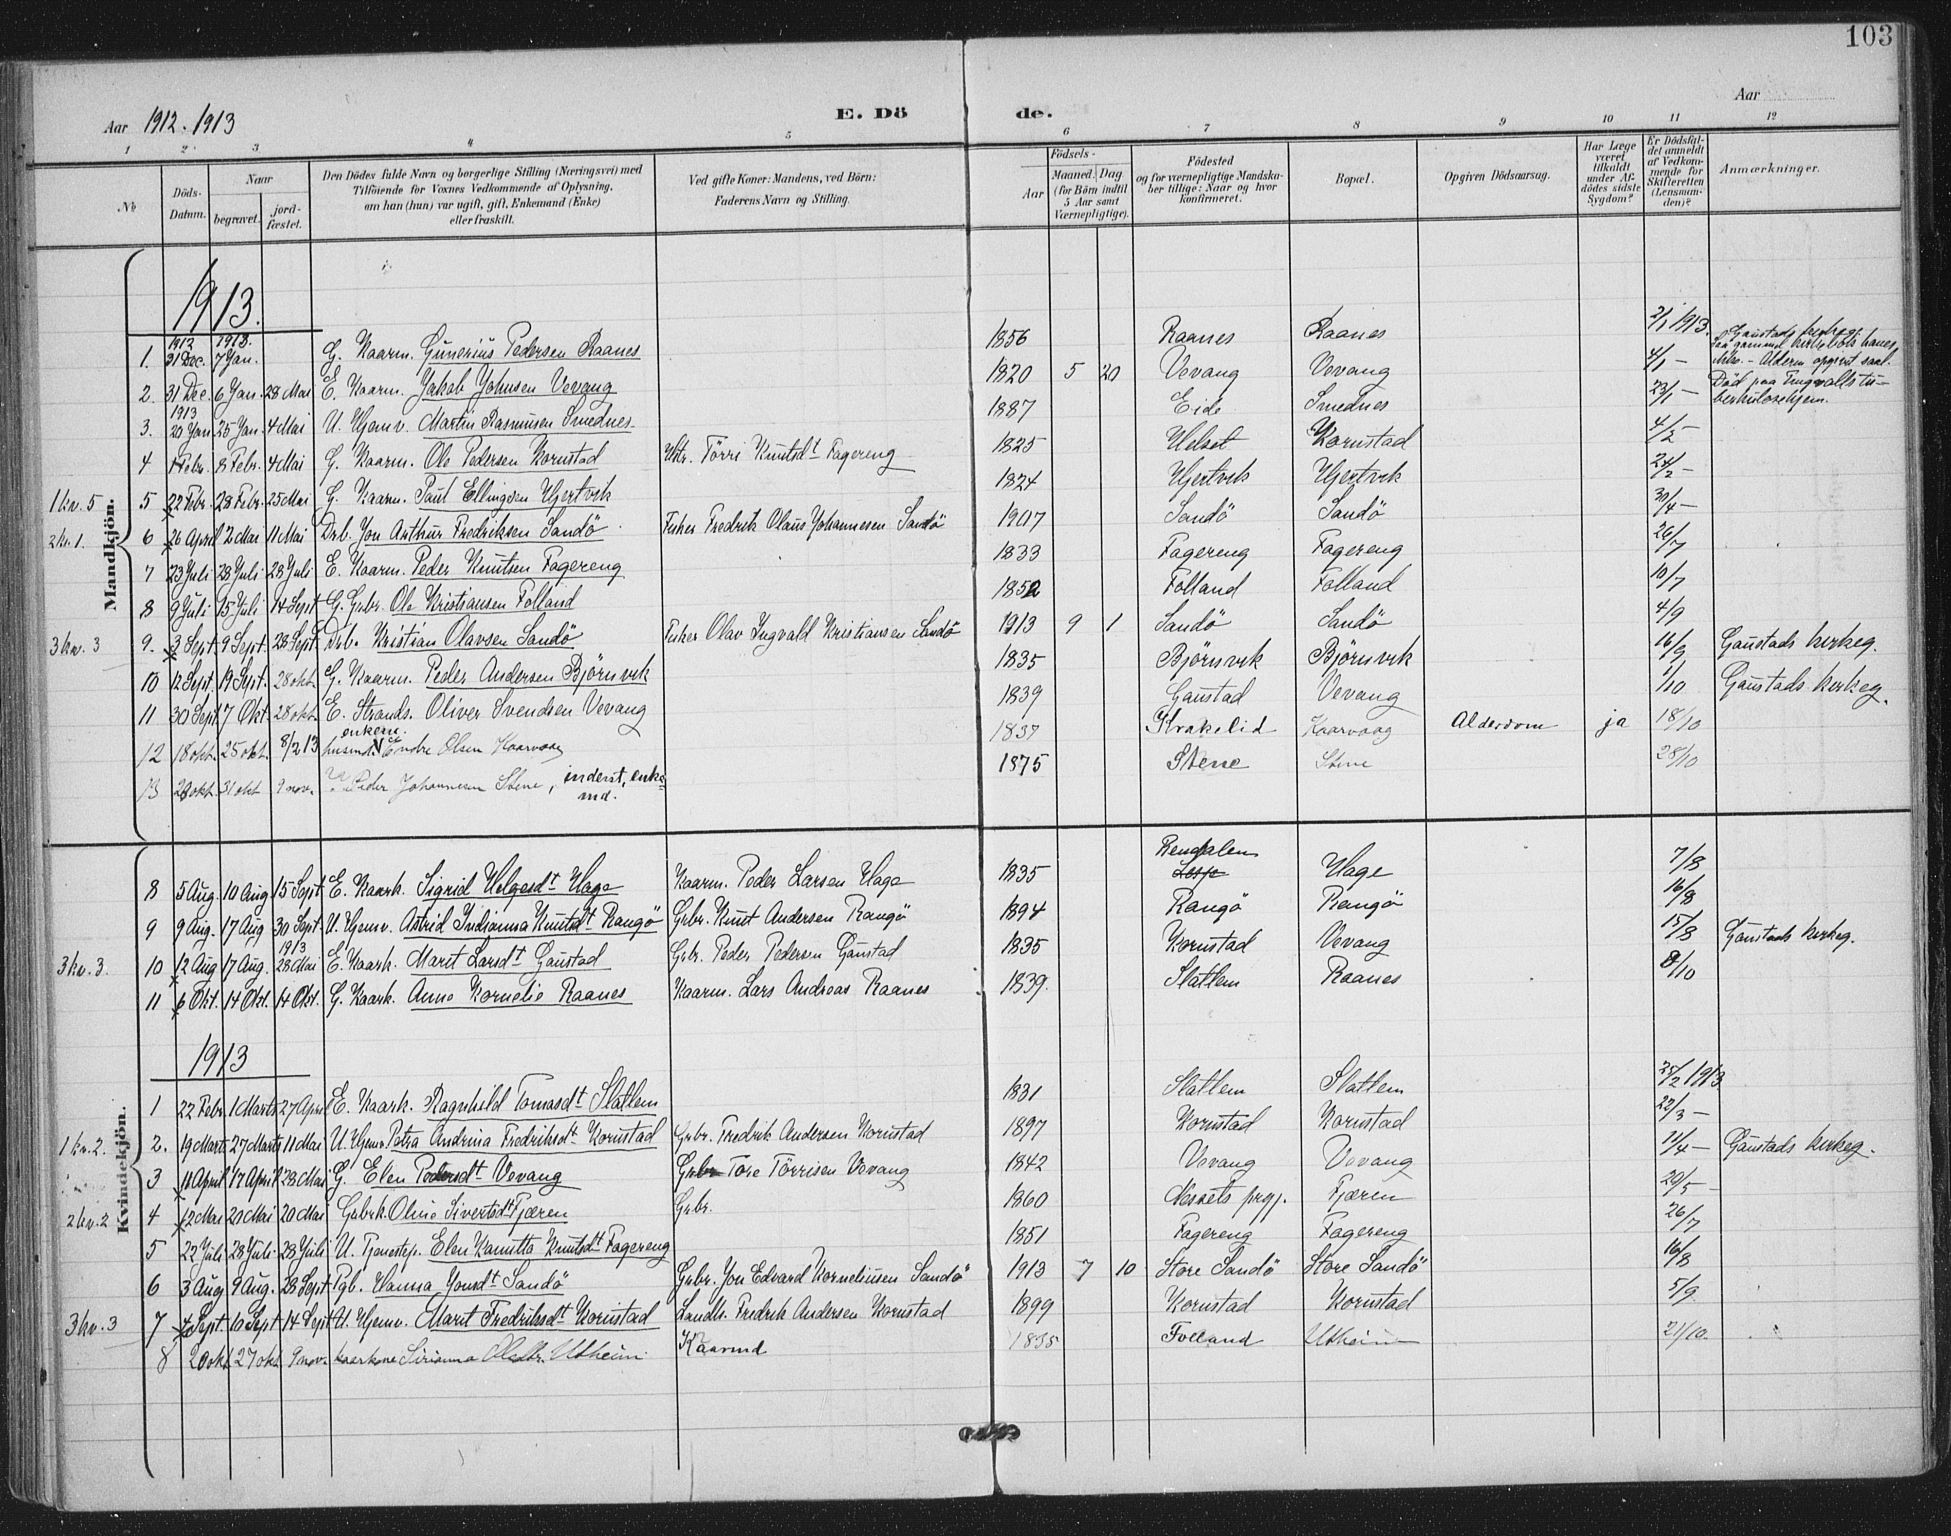 103
Aar 1912. 1913
E. Döde.
Aar
1 2 3 4 5 6 7 8 9 10 11 12
No
Döds-Datum.
Naar
begravet.
jord-fæstet.
Den Dödes fulde Navn og borgerlige Stilling (Næringsvei) med
Tilföiende for Voxnes Vedkommende af Oplysning,
om han (hun) var ugift, gift, Enkemand (Enke)
eller fraskilt.
Ved gifte Koner: Mandens, ved Börn:
Faderens Navn og Stilling.
Födsels-
Aar
Maaned. Dag
(for Börn indtil
5 Aar samt
Værnepligtige).
Födested
og for værnepligtige Mandska-
ber tillige: Naar og hvor
konfirmeret.
Bopæl.
Opgiven Dödsaarsag.
Har Læge
været
tilkaldt
under Af-
dödes sidste
Sygdom?
Er Dödsfal-
det anmeldt
af Vedkom-
mende for
Skifteretten
(Lensman-
den)?
Anmærkninger.
Mandkjön.
1913.
1. 1912 31 Dec. 1913. 7 Jan. G. Kaarm. Gunerius Pedersen Raanes 1856 Raanes Raanes 2/1 1913. Gaustads kirkeg.
2. 31 Dec. 6 Jan. 28 Mai E. Kaarm. Jakob Johnsen Vevang 1820 5 20 Vevang Vevang 4/1 –
3. 1913 20 Jan. 25 Jan. 4 Mai U. Hjemv. Martin Rasmusen Smednes 1887 Eide Smednes 23/1 – Död paa Tingvolls tu-
berkulosehjem.
4 1 Febr. 8 Febr. 4 Mai G. Kaarm. Ole Pedersen Kornstad Törri Knutsdt Fagereng 1825 Helset Kornstad 4/2 –
1 kv. 5 5 22 Febr. 28 Febr. 25 Mai G. Kaarm. Paul Ellingsen Hjertvik 1824 Hjertvik Hjertvik 24/2 –
2 kv. 1. 6 26 April 2 Mai 11 Mai Drb. Jon Arthur Fredriksen Sandö Fisker Fredrik Olaus Johannesen Sandö 1907 Sandö Sandö 30/4 –
7 23 Juli 28 Juli 28 Juli E. Kaarm. Peder Knutsen Fagereng 1833 Fagereng Fagereng 26/7
8 9 Juli 15 Juli 14 Sept G. Grbr. Ole Kristiansen Folland 1852 Folland Folland 10/7
3 kv. 3 9. 3 Sept. 9 Sept. 28 Sept. Drb. Kristian Olavsen Sandö Fisker Olav Ingvald Kristiansen Sandö 1913 9 1 Sandö Sandö 4/9
10 12 Sept. 19 Sept. 28 okt. G. Kaarm. Peder Andersen Björnvik 1835 Björnvik Björnvik 16/9 Gaustads kirkeg.
11 30 Sept. 7 Okt. 28 okt. E. Strands. Oliver Svendsen Vevang 1839 Gaustad Vevang 1/10 Gaustads kirkeg.
12 18 okt. 25 okt. 8/2 13 enkem. Endre Olsen Kaarvaag 1837 Krakelid Kaarvaag Alderdom ja 18/10
13 okt. 31 okt 9 nov. Peder Johannesen Stene, inderst, enke-
md. 1875 Stene Stene 28/10
Kvindekjön.
8 5 Aug. 10 Aug 15 Sept E. Kaark. Sigrid Helgesdt Hage Kaarm. Peder Larsen Hage 1835 Lesje Hage 7/8
9 9 Aug. 17 Aug 30 Sept U. Hjemv. Astrid Indianna Knutsdt Rangö Grbr. Knut Andersen Rangö 1894 Rangö Rangö 16/8
3 kv. 3. 10 12 Aug 17 Aug. 1913 28 Mai E. Kaark. Marit Larsdt Gaustad Grbr. Peder Pedersen Gaustad 1835 Kornstad Vevang 15/8 Gaustads kirkeg.
11 6 Okt. 14 Okt. 14 Okt. G. Kaark. Anne Kornelie Raanes Kaarm. Lars Andreas Raanes 1839. Slatlem Raanes 8/10
1913
1 22 Febr. 1 Marts 27 April E. Kaark. Ragnhild Tomasdt Slatlem 1831 Slatlem Slatlem 25/2 1913
1 kv. 2. 2. 19 Marts 27 Marts 11 Mai U. Hjemv. Petra Andrina Fredriksdt Kornstad Grbr. Fredrik Andersen Kornstad 1897 Kornstad Kornstad 22/3 –
3 11 April 17 April 28 Mai G. Elen Pedersdt Vevang Grbr Tore Törrisen Vevang 1842 Vevang Vevang 11/4 – Gaustads kirkeg.
2 kv. 2 4 12 Mai 20 Mai 20 Mai Grbrk. Oline Sivertsdt Fjæren Grbr. 1860 Nessets prgj. Fjæren 20/5 –
5 22 Juli 28 Juli 28 Juli U. Tjenestep. Elen Kanutta Knutsdt Fagereng 1851 Fagereng Fagereng 26/7
6 3 Aug 9 Aug. 28 Sept Pgb. Hanna Jonsdt Sandö Grbr. Jon Edvard Korneliusen Sandö 1913 7 10 Store Sandö Store Sandö 16/8
3 kv. 3 7 4 Sept. 10 Sept 14 Sept U. Hjemv. Marit Fredriksdt Kornstad Landh. Fredrik Andersen Kornstad 1899 Kornstad Kornstad 5/9.
8 20 okt. 27 okt. 9 nov. kaarkone Olsdtr. Utheim Kaarmd 1835 Folland Utheim 21/10.